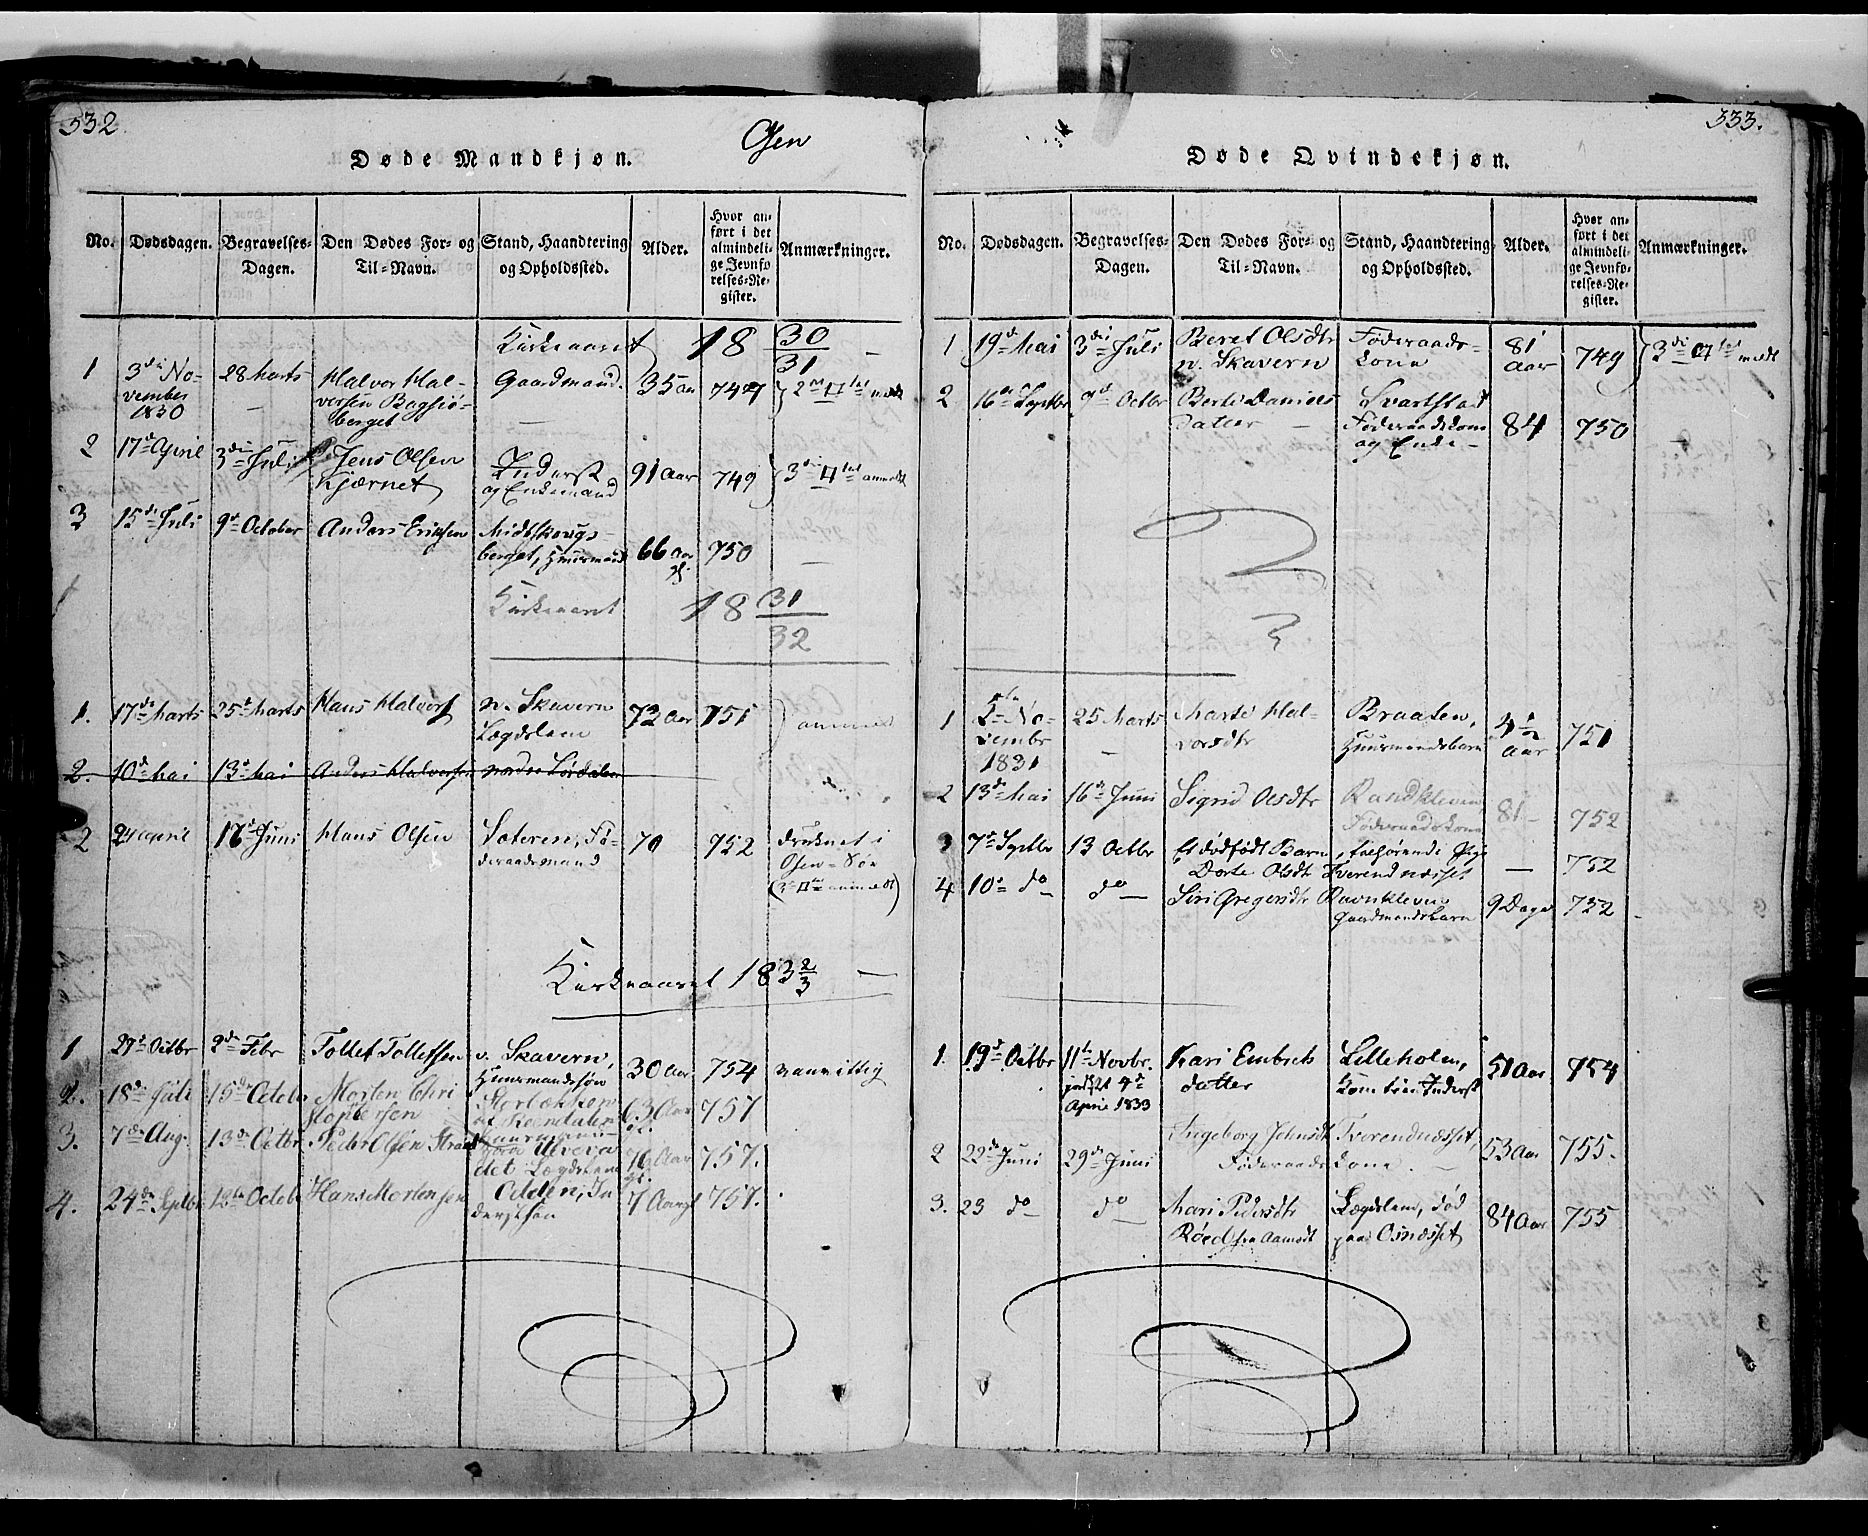 332
Osen
Døde Mandkjøn.
No. Dødsdagen. Begravelses-Dagen. Den Dødes For- og Til-Navn. Stand, Haandtering og Opholdssted. Alder. Hvor anført i det almindelige Jevnførelses-Register. Anmærkninger.
Kirkeaaret 18 30/31
1 3die November 1830 28 Marts Halvor Halvorsen Bagsiøberget Gaardmand. 35 Aar 747
2 17de April 3die Juli Jens Olsen Kjærnet Inderst og Enkemand 91 Aar 749
3 15de Juli 9de October Anders Eriksen Midtskougsberget, Huusmand 66 Aar gl. 750
Kirkeaaret 18 31/32
1. 17de Marts 25de Marts Hans Halvors. n. Skavern Lægdslem 72 Aar 751
2. 10de Mai 13de Mai Anders Halvorsen nordre Lørdalen
2 24 April 16de Juni Hans Olsen Sæteren, Føderaadsmand 70 752 druknet i Osen-Søe
Kirkeaaret 183 2/3
1 27de Octbr 2de Febr Tollef Tollefsen v. Skavern, Huusmandssøn 30 Aar 754 vanvittig
2. 18de Juli 15de Octobr Morten Christophersen 63 Aar gl. 757
3. 7de Aug. 13de Octbr Peder Olsen Strand Lægdslem 76 Aar gl. 757.
4. 24de Septbr 13de Octobr Hans Mortensen Odden, Inderstsøn 7 Aar gl. 757.
333.
Døde Qvindekjøn.
No. Dødsdagen. Begravelses-Dagen. Den Dødes For- og Til-Navn. Stand, Haandtering og Opholdssted. Alder. Hvor anført i det almindelige Jevnførelses-Register. Anmærkninger.
1 19de Mai 3die Juli Beret Olsdtr n. Skavern Føderaadskone 81 Aar 749
2 16de Septbr 9de Octbr Berte Daniels Datter Svartstad Føderaadskone og Enke 84 750
1 5te November 1831 25 Marts Marte Halvorsdtr Braaten, Huusmandsbarn 4 1/2 Aar 751
2 13de Mai 16de Juni Sigrid Olsdtr Føderaadskone 81 752
3 7de Septbr 13 Octbr Et dødfødt Barn, tilhørende Pige Dorte Olsdtr Tverendnæsset — 752
4 10de do do Siri Gregersdtr Ravnkleven Gaardmandsbarn 9 Dage 752
1. 19de Octbr 11te Novbr. jordfæstet 4de April 1833 Kari Embrets datter Lilleholen, Kone til en Inderst 51 Aar 754
2 22de Juni 29de Juni Ingeborg Johnsdtr Tverendnæsset, Føderaadskone. 53 Aar 755.
3. 23 do do Mari Pedersdtr Røed fra Aamodt Lægdslem, død paa Osnæsset 84 Aar 755